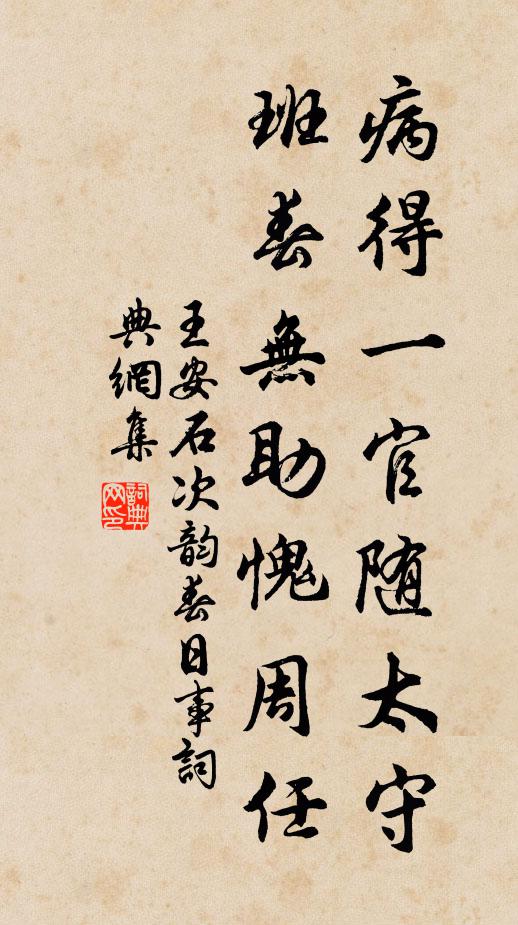 病得一官随太守
班春無助愧周任
王安石次韵春日事詞
典網集
詞典
网印